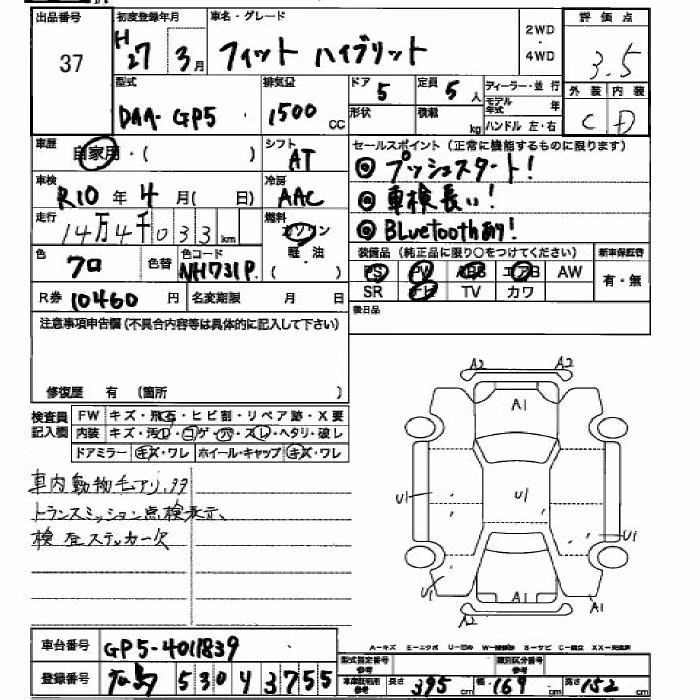 出品番号 初度登録年月 車名・グレード 2WD・4WD 評価点
37 H27 3月 フィット ハイブリット 3.5
型式 排気量 ドア 定員 ディーラー・並行 外装 内装
DAA-GP5 1500 CC 5 5人 モデル年式 年 C D
形状 積載 kg ハンドル 左・右
車歴 自家用・( ) シフト AT セールスポイント(正常に機能するものに限ります)
◎ プッシュスタート!
車検 R10年4月( 日) 冷房 AAC ◎ 車検長い!
走行 14万4千033km 燃料 ガソリン 軽・油 ( ) ◎ Bluetooth有!
色 クロ 色替 色コード NH731P 装備品(純正品に限り○をつけてください) 新車保証書
PS PW ABS エアB AW 有・無
R券 10460円 名変期限 月 日 SR ナビ TV カワ
注意事項申告欄(不具合内容等は具体的に記入して下さい) 後日品
修復歴 有 (箇所 )
検査員記入欄 FW キズ・飛石・ヒビ割・リペア跡・X要
内装 キズ・汚レ・コゲ・穴・スレ・ヘタリ・破レ
ドアミラー キズ・ワレ ホイール・キャップ キズ・ワレ
車内動物毛アリ、
トランスミッション点検表示、
検 左ステッカー欠
A2 A2
A1
U1 U1
U1
U1 A1 A1
A2
A-キズ E-エクボ U-凹み S-サビ
車台番号 GP5-4011839
型式指定番号参考 類別区分番号参考
登録番号 530 4 3755
車庫証明用参考 長さ 395cm 幅 169cm 高さ 152cm